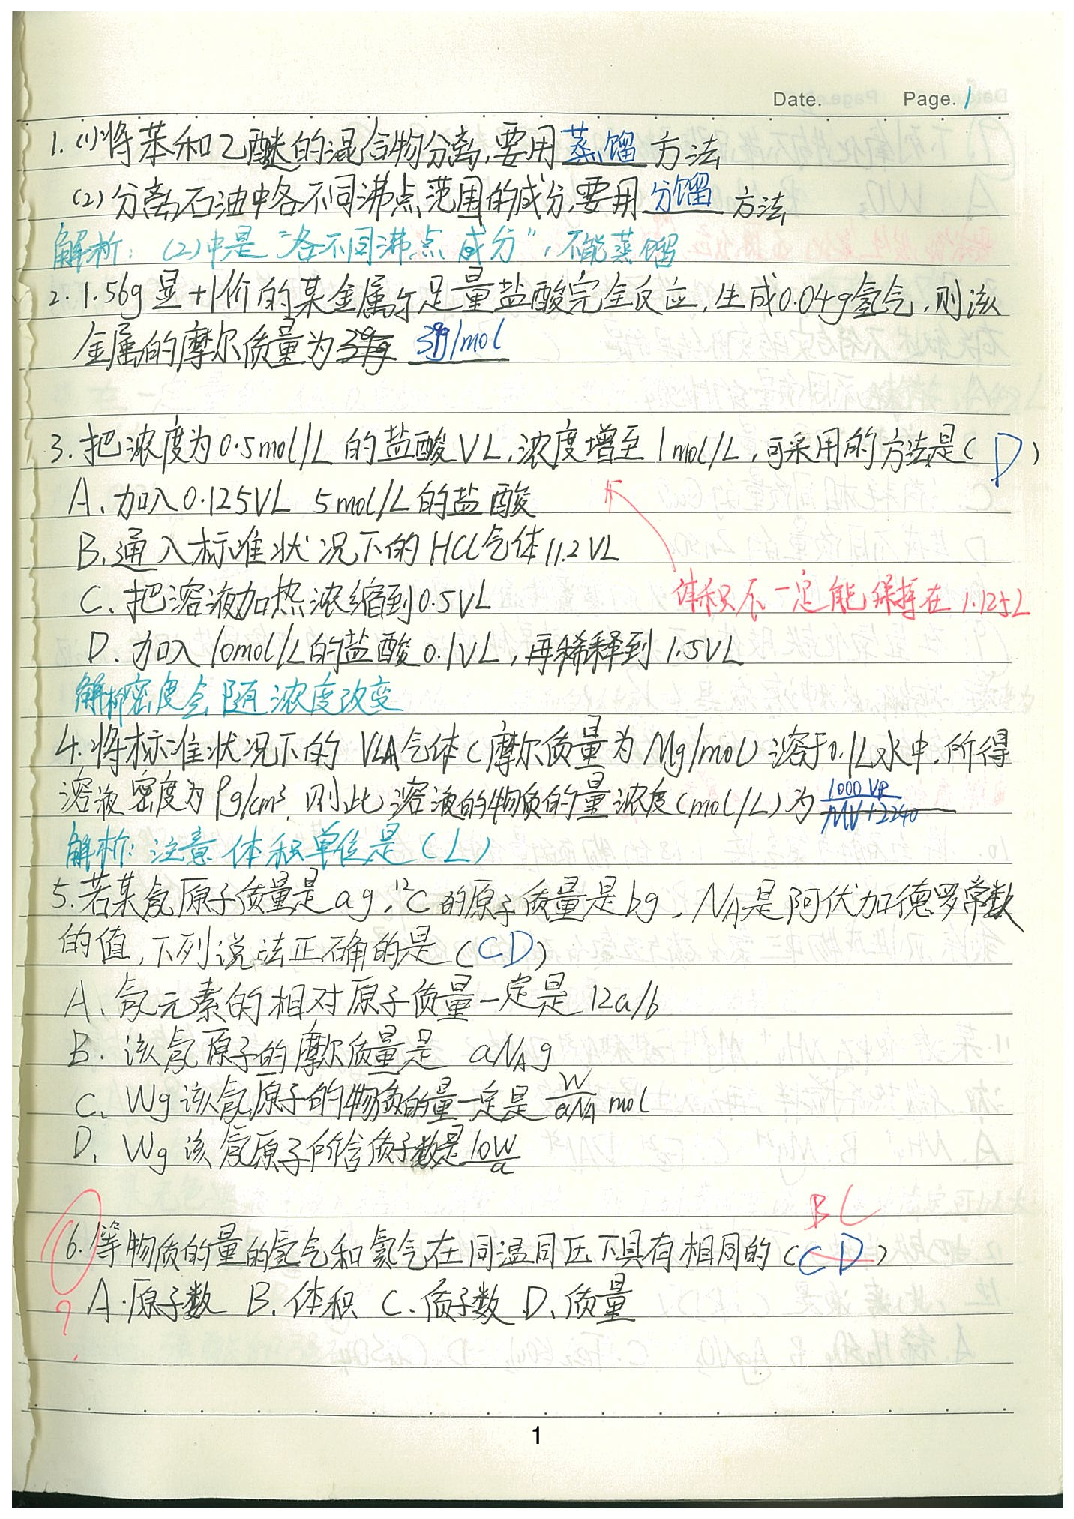 Date. Page. 1
1. (1)将苯和乙醚的混合物分离,要用 蒸馏 方法
(2)分离石油中各不同沸点范围的成分,要用 分馏 方法
解析:(2)中是“各不同沸点成分”,不能蒸馏
2. 1.56g显+1价的某金属与足量盐酸完全反应,生成0.04g氢气,则该
金属的摩尔质量为 39g/mol
3. 把浓度为0.5mol/L的盐酸VL,浓度增至1mol/L,可采用的方法是(D)
A、加入0.125VL 5mol/L的盐酸
B、通入标准状况下的HCl气体11.2VL
C、把溶液加热浓缩到0.5VL
体积不一定能保持在1.125L
D、加入10mol/L的盐酸0.1VL,再稀释到1.5VL
解析密度会随浓度改变
4. 将标准状况下的VLA气体(摩尔质量为Mg/mol)溶于0.1L水中,所得
溶液密度为ρg/cm³,则此溶液的物质的量浓度(mol/L)为 1000Vρ/MV+2240
解析:注意体积单位是(L)
5. 若某氖原子质量是ag,¹²C的原子质量是bg,NA是阿伏加德罗常数
的值,下列说法正确的是(CD)
A、氖元素的相对原子质量一定是12a/b
B、该氖原子的摩尔质量是 aNA g
C、Wg该氖原子的物质的量一定是W/aNA mol
D、Wg该氖原子所含质子数是10W/a
BC
6. 等物质的量的氢气和氦气在同温同压下具有相同的(CD)
?
A.原子数 B、体积 C、质子数 D、质量
1